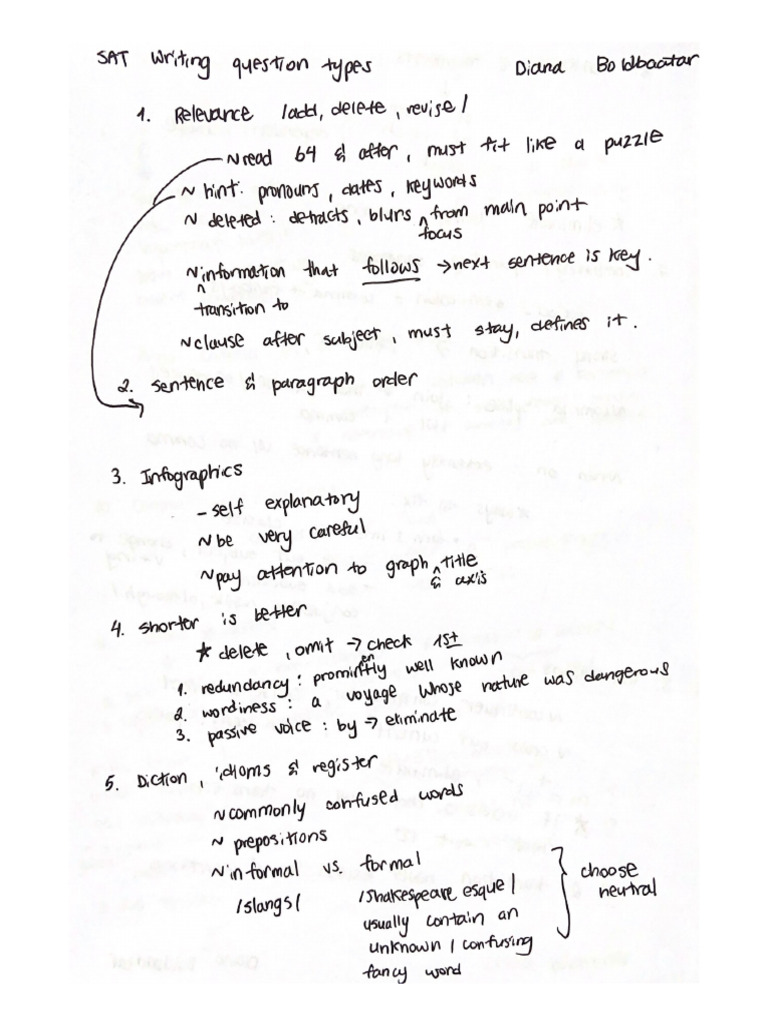 SAT Writing question types Diana Boldbaatar
1. Relevance /add, delete, revise/
~ read b4 & after, must fit like a puzzle
~ hint: pronouns, dates, keywords
~ deleted: detracts, blurs ^ from main point
focus
~ information that follows → next sentence is key.
^
transition to
~ clause after subject, must stay, defines it.
2. sentence & paragraph order
3. Infographics
- self explanatory
~ be very careful
~ pay attention to graph ^ title
& axis
4. shorter is better
* delete, omit → check 1st
1. redundancy: prominently well known
2. wordiness: a voyage whose nature was dangerous
3. passive voice: by → eliminate
5. Diction, idioms & register
~ commonly confused words
~ prepositions
~ informal vs. formal } choose
/slangs/ /Shakespeare esque/ neutral
usually contain an
unknown / confusing
fancy word